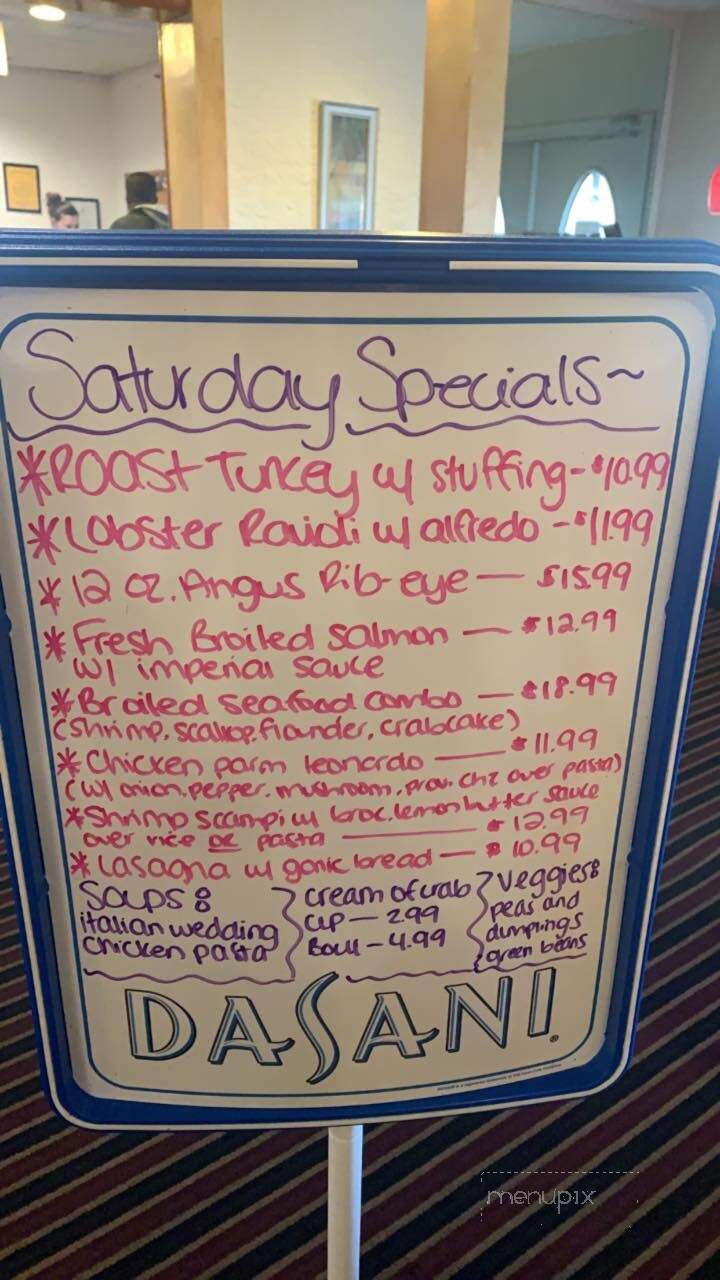 Saturday Specials~
*Roast Turkey w/ stuffing-$10.99
*Lobster Ravioli w/ alfredo -$11.99
*12 oz. Angus Rib-eye — $15.99
*Fresh Broiled Salmon — $12.99
w/ imperial sauce
*Broiled seafood combo — $18.99
(shrimp, scallop, flounder, crabcake)
*Chicken parm leonardo — $11.99
(w/ onion, pepper, mushroom, prov. chz over pasta)
*Shrimp scampi w/ broc. lemon butter sauce
over rice or pasta — $12.99
*Lasagna w/ garlic bread — $10.99
Soups:
italian wedding
chicken pasta
cream of crab
cup — 2.99
Bowl - 4.99
Veggies:
peas and
dumplings
green beans
DASANI
menupix